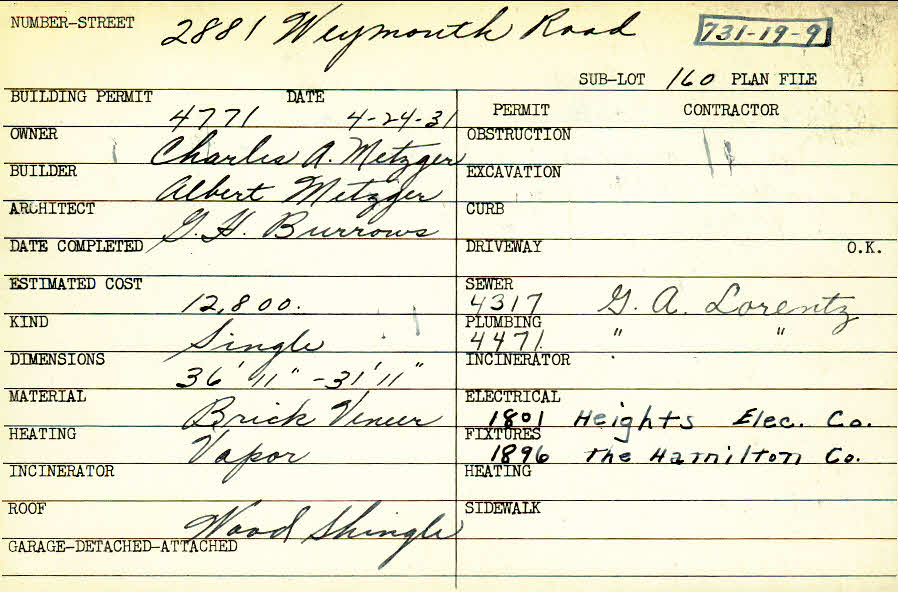 NUMBER-STREET 2881 Weymouth Road 731-19-9
SUB-LOT 160 PLAN FILE
BUILDING PERMIT DATE PERMIT CONTRACTOR
4771 4-24-31
OWNER Charles A. Metzger OBSTRUCTION
BUILDER Albert Metzger EXCAVATION
ARCHITECT G. H. Burrows CURB
DATE COMPLETED DRIVEWAY O.K.
ESTIMATED COST 12,800. SEWER 4317 G. A. Lorentz
KIND Single PLUMBING 4471 " "
DIMENSIONS 36' 11" - 31' 11" INCINERATOR
MATERIAL Brick Veneer ELECTRICAL 1801 Heights Elec. Co.
HEATING Vapor FIXTURES 1896 The Hamilton Co.
INCINERATOR HEATING
ROOF Wood Shingle SIDEWALK
GARAGE-DETACHED-ATTACHED